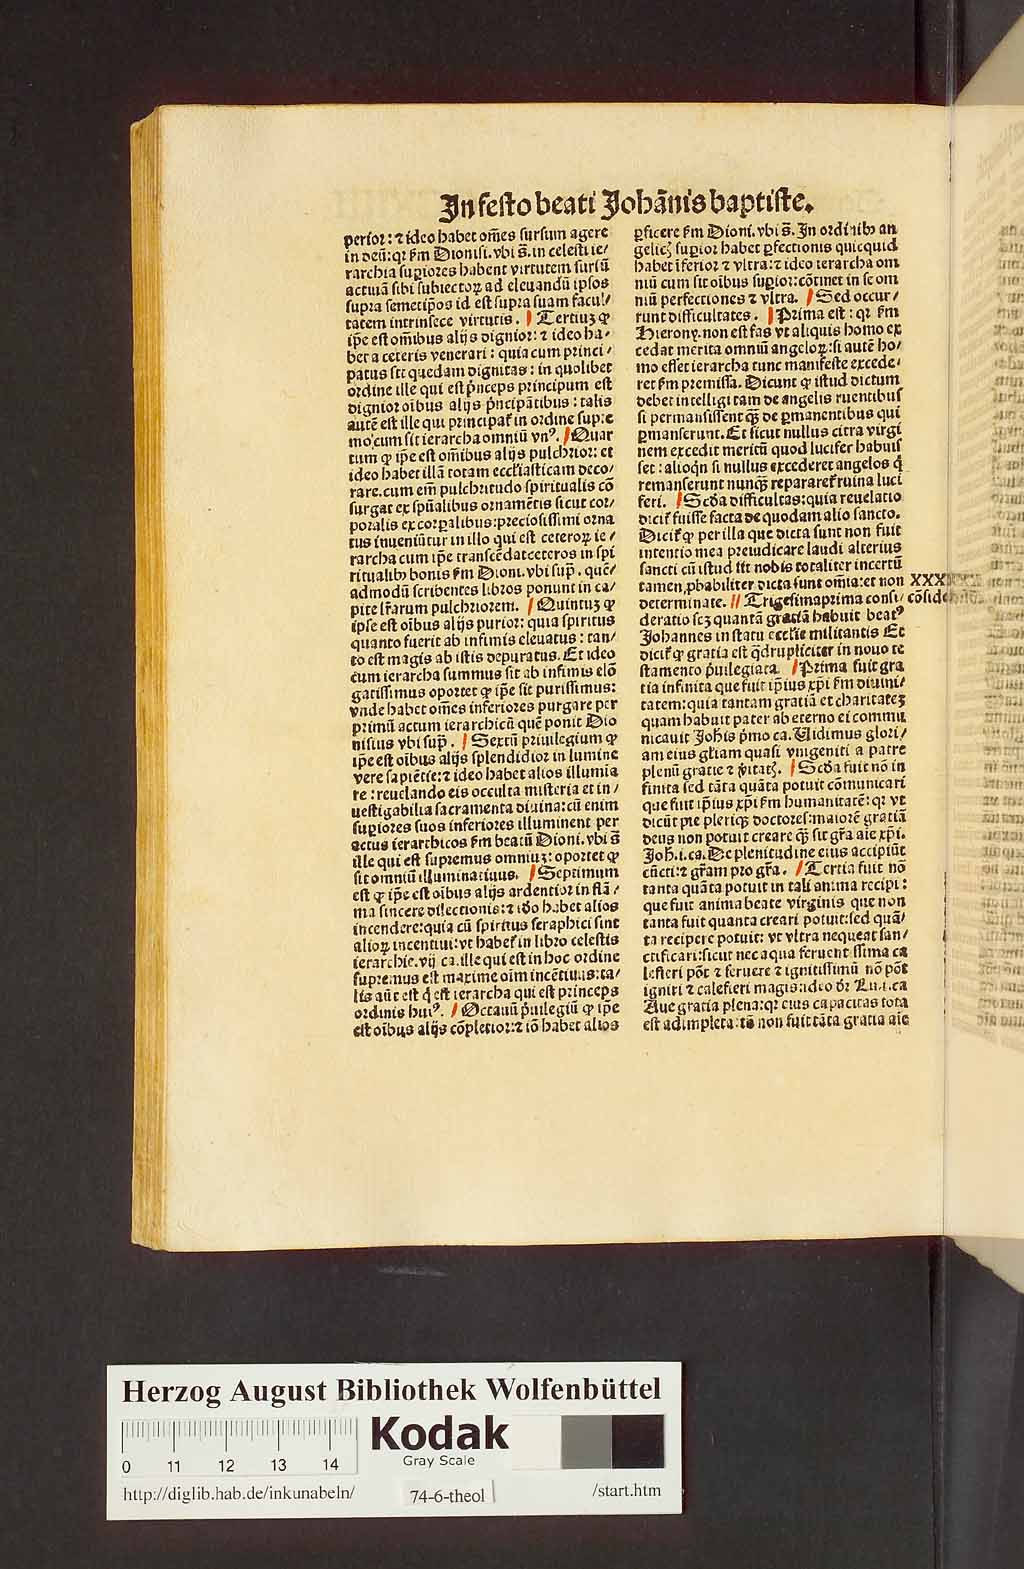 In festo beati Johānis baptiste.
perior: ⁊ ideo habet om̄es sursum agere
in deū: qꝛ ẜm Dionisi. vbi s̄. in celesti ie/
rarchia suꝑiores habent virtutem suriū
actiuā sibi subiectoꝝ ad eleuandū ipsos
supra semetip̄os id est supra suam facul/
tatem intrinsece virtutis. Tertiuʒ ꝙ
ip̄e est om̄ibus alijs dignior: ⁊ ideo ha/
bet a ceteris venerari: quia cum princi/
patus sit quedam dignitas: in quolibet
ordine ille qui est pͥnceps principum est
dignior oībus alijs pͥncipātibus: talis
autē est ille qui principat᷑ in ordine supre
mo: cum sit ierarcha omniū vnꝰ. Quar
tum ꝙ ip̄e est om̄ibus alijs pulchrior: et
ideo habet illā totam eccl̄iasticam deco/
rare. cum em̄ pulchritudo spiritualis cō
surgat ex sp̄ualibus ornamētis sicut cor/
poralis ex corꝑalibus: preciosissimi orna
tus inueniūtur in illo qui est ceteroꝝ ie/
rarcha cum ip̄e transcēdat ceteros in spi
ritualibꝫ bonis ẜm Dioni. vbi sup̄. quē/
admodū scribentes libros ponunt in ca/
pite lr̄arum pulchriorem. Quintuʒ ꝙ
ipse est oībus alijs purior: quia spiritus
quanto fuerit ab infimis eleuatus: tan/
to est magis ab istis depuratus. Et ideo
cum ierarcha summus sit ab infimis elō
gatissimus oportet ꝙ ip̄e sit purissimus:
vnde habet om̄es inferiores purgare per
primū actum ierarchicū quē ponit Dio
nisius vbi sup̄. Sextū priuilegium ꝙ
ip̄e est oībus alijs splendidior in lumine
vere sapiētie: ⁊ ideo habet alios illumia
re: reuelando eis occulta misteria et in/
uestigabilia sacramenta diuina: cū enim
suꝑiores suos inferiores illuminent per
actus ierarchicos ẜm beatū Dioni. vbi s̄
ille qui est supremus omniuʒ: oportet ꝙ
sit omniū illuminatiuus. Septimum
est ꝙ ip̄e est oībus alijs ardentior in flā/
ma sincere dilectionis: ⁊ iđo habet alios
incendere: quia cū spiritus seraphici sint
alioꝝ incentiui: vt habet᷑ in libro celestis
ierarchie. vij ca. ille qui est in hoc ordine
supremus est maxime oīm incētiuus: ta/
lis aūt est q̇ est ierarcha qui est princeps
ordinis huiꝰ. Octauū pͥuilegiū ꝙ ip̄e
est oībus alijs cōpletior: ⁊ iō habet alios
ꝑficere ẜm Dioni. vbi s̄. In ordinibꝫ an
gelicꝭ suꝑior habet ꝑfectionis quicquid
habet īferior ⁊ vltra: ⁊ ideo ierarcha om
niū cum sit oībus suꝑior: cōtinet in se om
niū perfectiones ⁊ vltra. Sed occur/
runt difficultates. Prima est: qꝛ ẜm
Hieronẏ. non est fas vt aliquis homo ex
cedat merita omniū angeloꝝ: si autē ho/
mo esset ierarcha tunc manifeste excede/
ret ẜm premissa. Dicunt ꝙ istud dictum
debet intelligi tam de angelis ruentibus
si permansissent qꝫ̄ de ꝑmanentibus qui
ꝑmanserunt. Et sicut nullus citra virgi
nem excedit meritū quod lucifer habuis
set: alioqn̄ si nullus excederet angelos q̇
remanserunt nunqꝫ̄ repararet᷑ ruina luci
feri. Scđa difficultas: quia reuelatio
dicit᷑ fuisse facta de quodam alio sancto.
Dicit᷑ ꝙ per illa que dicta sunt non fuit
intentio mea preiudicare laudi alterius
sancti cū istud sit nobis totaliter incertū
tamen ꝓbabiliter dicta sunt om̄ia: et non
determinate. Trigesimaprima consi/
deratio scꝫ quantā gratiā habuit beatꝰ
Johannes in statu eccl̄ie militantis Et
dicit᷑ ꝙ gratia est q̄drupliciter in nouo te
stamento pͥuilegiata. Prima fuit gra
tia infinita que fuit ip̄ius xp̄i ẜm diuini/
tatem: quia tantam gratiā et charitateʒ
quam habuit pater ab eterno ei commu
nicauit Joh̄is pͥmo ca. Vidimus glori/
am eius gl̄iam quasi vnigeniti a patre
plenū gratie ⁊ vͥitatꝭ. Scđa fuit nō in
finita sed tāta quāta potuit cōmunicari
que fuit ip̄ius xp̄i ẜm humanitatē: qꝛ vt
dicūt pie pleriqꝫ doctores: maiorē gratiā
deus non potuit creare qꝫ̄ sit gr̄a aīe xp̄i.
Joh̄. i. ca. De plenitudine eius accipiūt
cūcti: ⁊ gr̄am pro gr̄a. Tertia fuit nō
tanta quāta potuit in tali anima recipi:
que fuit anima beate virginis que non
tanta fuit quanta creari potuit: sed quā/
ta recipere potuit: vt vltra nequeat san/
ctificari: sicut nec aqua feruentissima ca
lefieri pōt ⁊ feruere ⁊ ignitissimū nō pōt
igniri ⁊ calefieri magis: ideo dr̄ Lu. i. ca
Aue gratia plena: qꝛ eius capacitas tota
est adimpleta: tn̄ non fuit tāta gratia aīe
cōside
Herzog August Bibliothek Wolfenbüttel
0 11 12 13 14
Kodak
Gray Scale
http://diglib.hab.de/inkunabeln/
74-6-theol
/start.htm